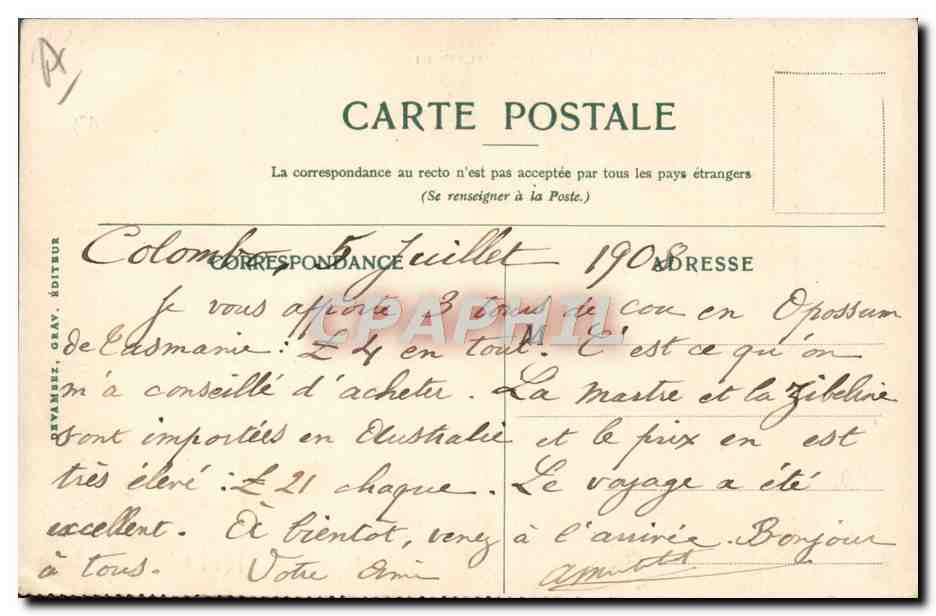 CARTE POSTALE
La correspondance au recto n'est pas acceptée par tous les pays étrangers
(Se renseigner à la Poste.)
CORRESPONDANCE
ADRESSE
DEVAMBEZ, GRAV. ÉDITEUR
Colombo, 5 Juillet 1908
Je vous apporte 3 tours de cou en Opossum
de Tasmanie : £ 4 en tout. C'est ce qu'on
m'a conseillé d'acheter. La martre et la Zibeline
sont importées en Australie et le prix en est
très élevé : £ 21 chaque. Le voyage a été
excellent. À bientôt, venez à l'arrivée. Bonjour
à tous. Votre ami
M
CPAPHIL